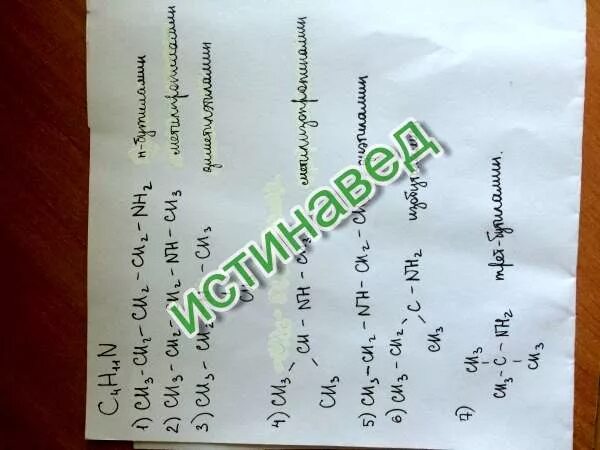 C₄H₁₁N
1) CH₃-CH₂-CH₂-CH₂-NH₂ н-бутиламин
2) CH₃-CH₂-CH₂-NH-CH₃ метилпропиламин
3) CH₃-CH₂ -CH₃ диметилэтиламин
4) CH₃
CH-NH-CH₃ метилизопропиламин
CH₃
5) CH₃-CH₂-NH-CH₂-CH₃
6) CH₃-CH₂
C-NH₂
CH₃
7) CH₃
CH₃-C-NH₂ трет-бутиламин.
CH₃
ИСТИНАВЕД